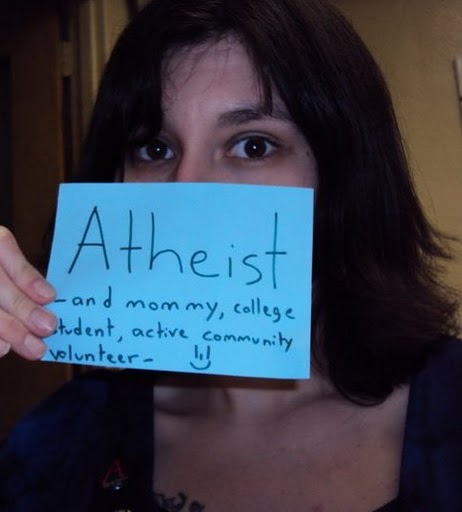 Atheist
-and mommy, college
student, active community
volunteer-